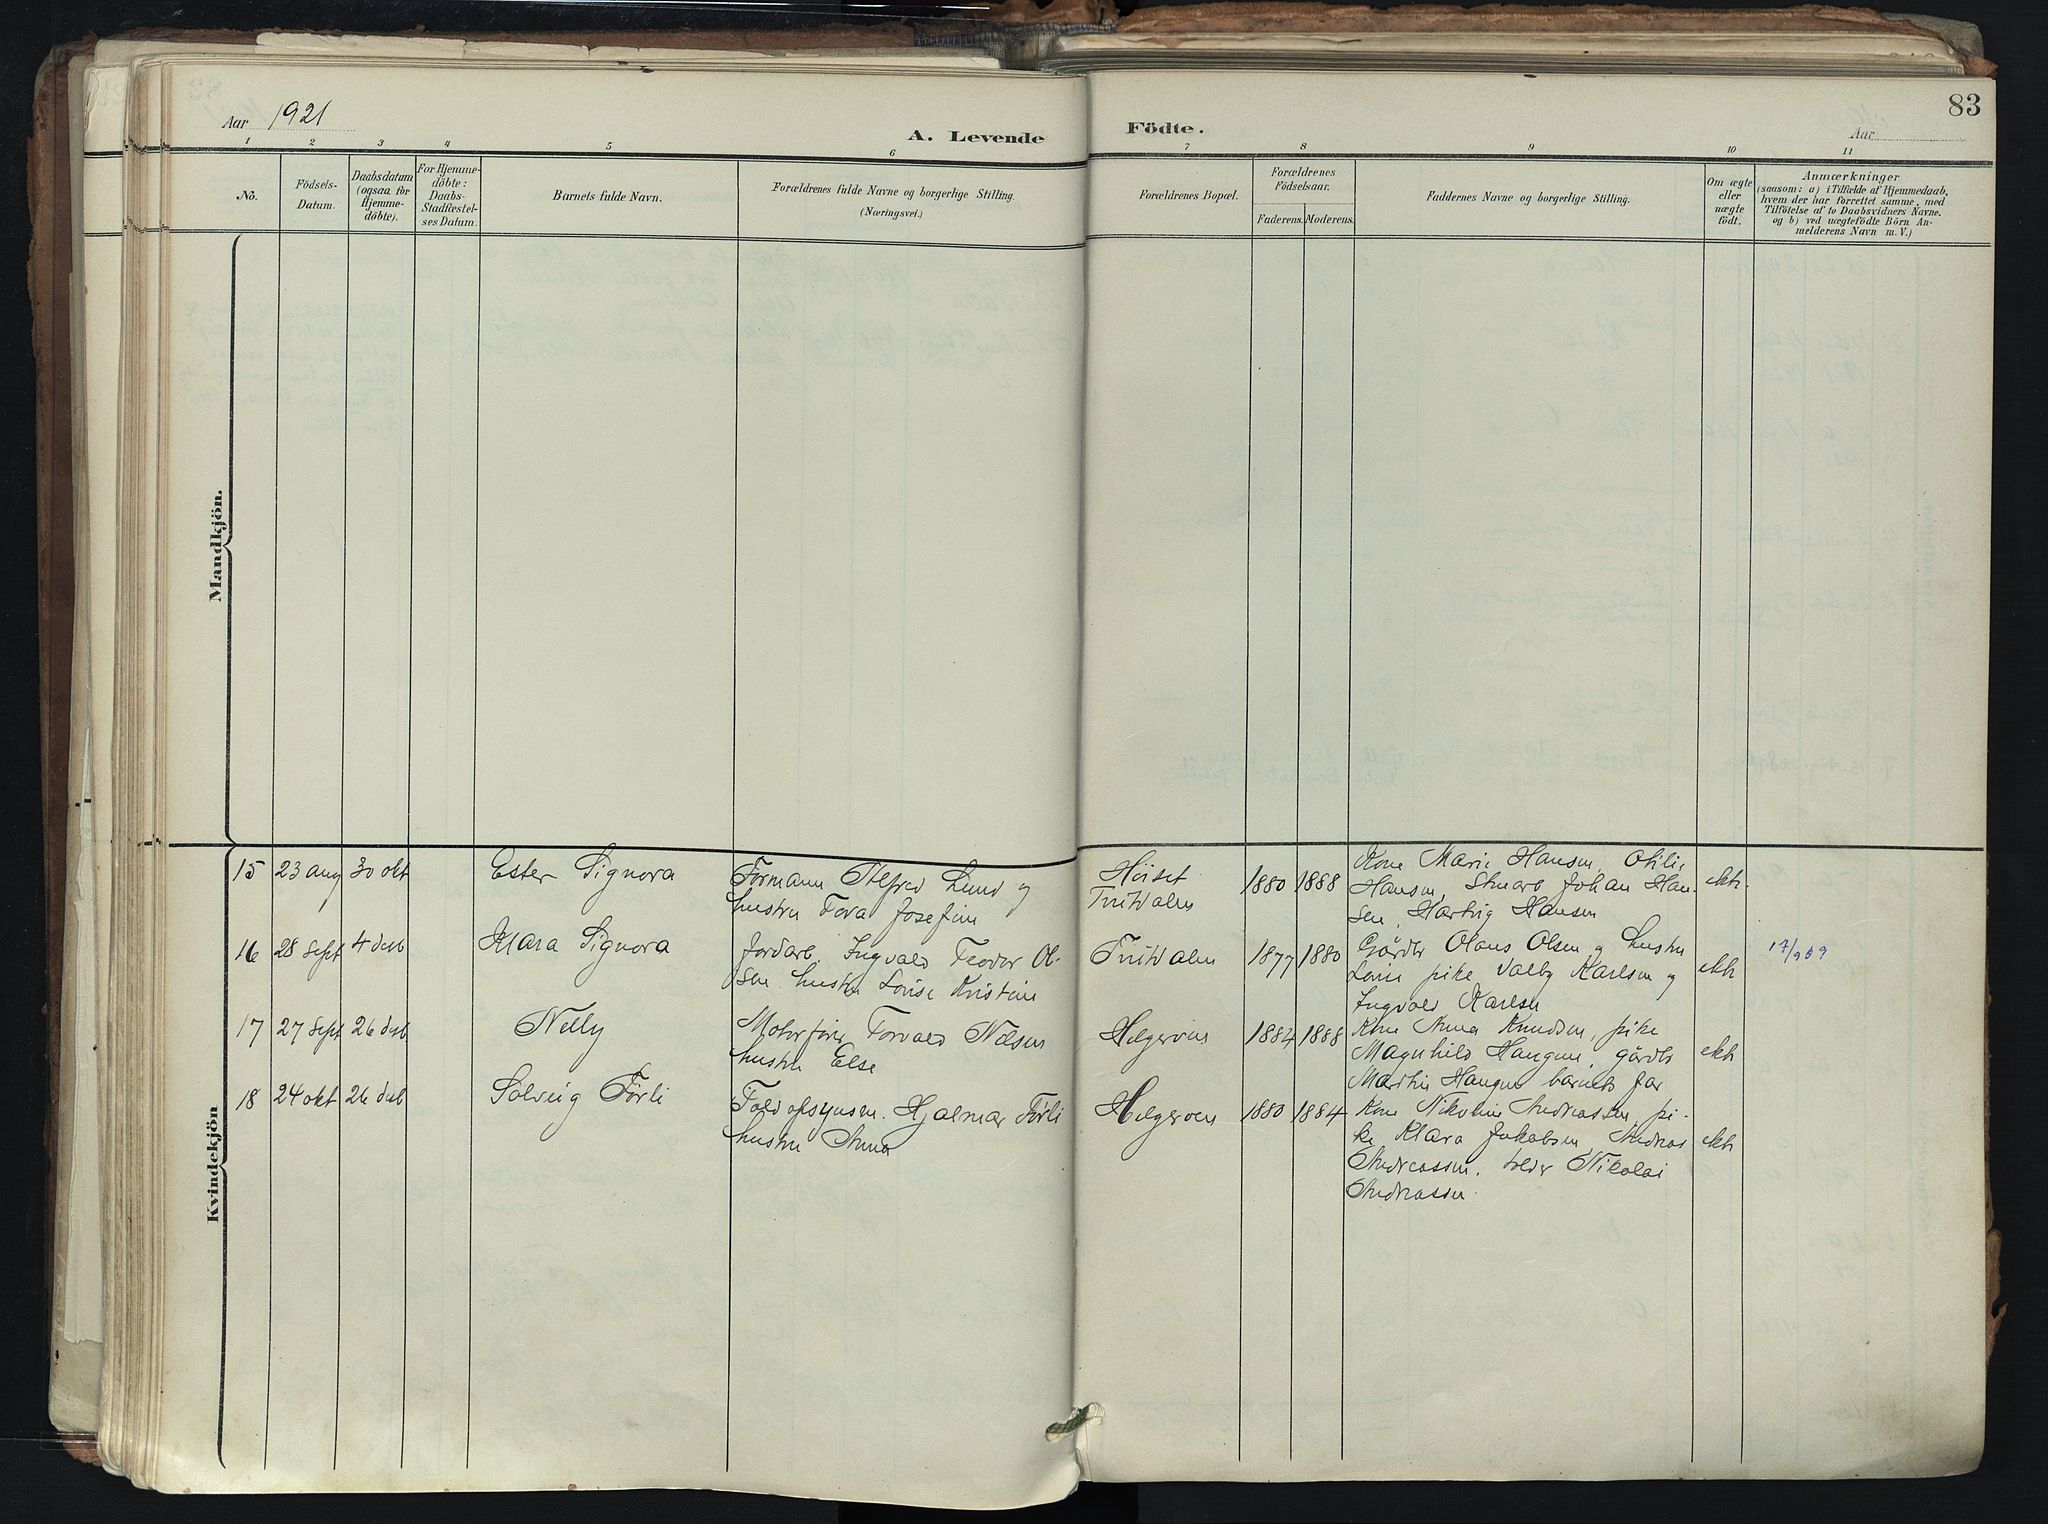 Aar 1921
A. Levende
Födte.
83
Aar
1 2 3 4 5 6 7 8 9 10 11
No.
Födsels-
Datum.
Daabsdatum
(ogsaa for
Hjemme-
döbte).
For Hjemme-
döbte:
Daabs-
Stadfæstel-
ses Datum.
Barnets fulde Navn.
Forældrenes fulde Navne og borgerlige Stilling.
(Næringsvei.)
Forældrenes Bopæl.
Forældrenes
Födselsaar.
Faderens. Moderens.
Faddernes Navne og borgerlige Stilling.
Om ægte
eller
uægte
födt.
Anmærkninger
(saasom: a) i Tilfælde af Hjemmedaab,
hvem der har forrettet samme, med
Tilföielse af to Daabsvidners Navne.
og b) ved uægtefödte Börn An-
melderens Navn m. V.)
Mandkjön.
Kvindekjön
15 23 aug 30 okt Ester Signora
Formann Alfred Lund og
hustru Tora Josefine
Höiset
1880 1888
Kone Marie Hansen, Otilie
Hansen, Johan Han-
sen, Hartvig Hansen
ekte
16 28 sept 4 desb Klara Signora
Jordarb. Ingvald Teodor Ol-
sen hustru Lovise Kristine
1877 1880
Gårdb Olaus Olsen og hustru
Lovise pike Valby Karlsen og
Ingvald Karlsen
ekte
17/909
17 27 sept 26 desb Nelly
Motorfører Torvald Nelsen
hustru Else
Helgerøen
1884 1888
Kone Anna Knudsen, pike
Magnhild Haugene, gårdb
Marthin Haugen barnets far
ekte
18 24 okt 26 desb Solveig Førli
Toldopsynsm. Hjalmar Førli
hustru Anna
Helgerøen
1880 1884
Kone Nikoline Andreassen, pi-
ke Klara Jakobsen, Andreas
Andreassen, tolder Nikolai
Andreassen
ekte